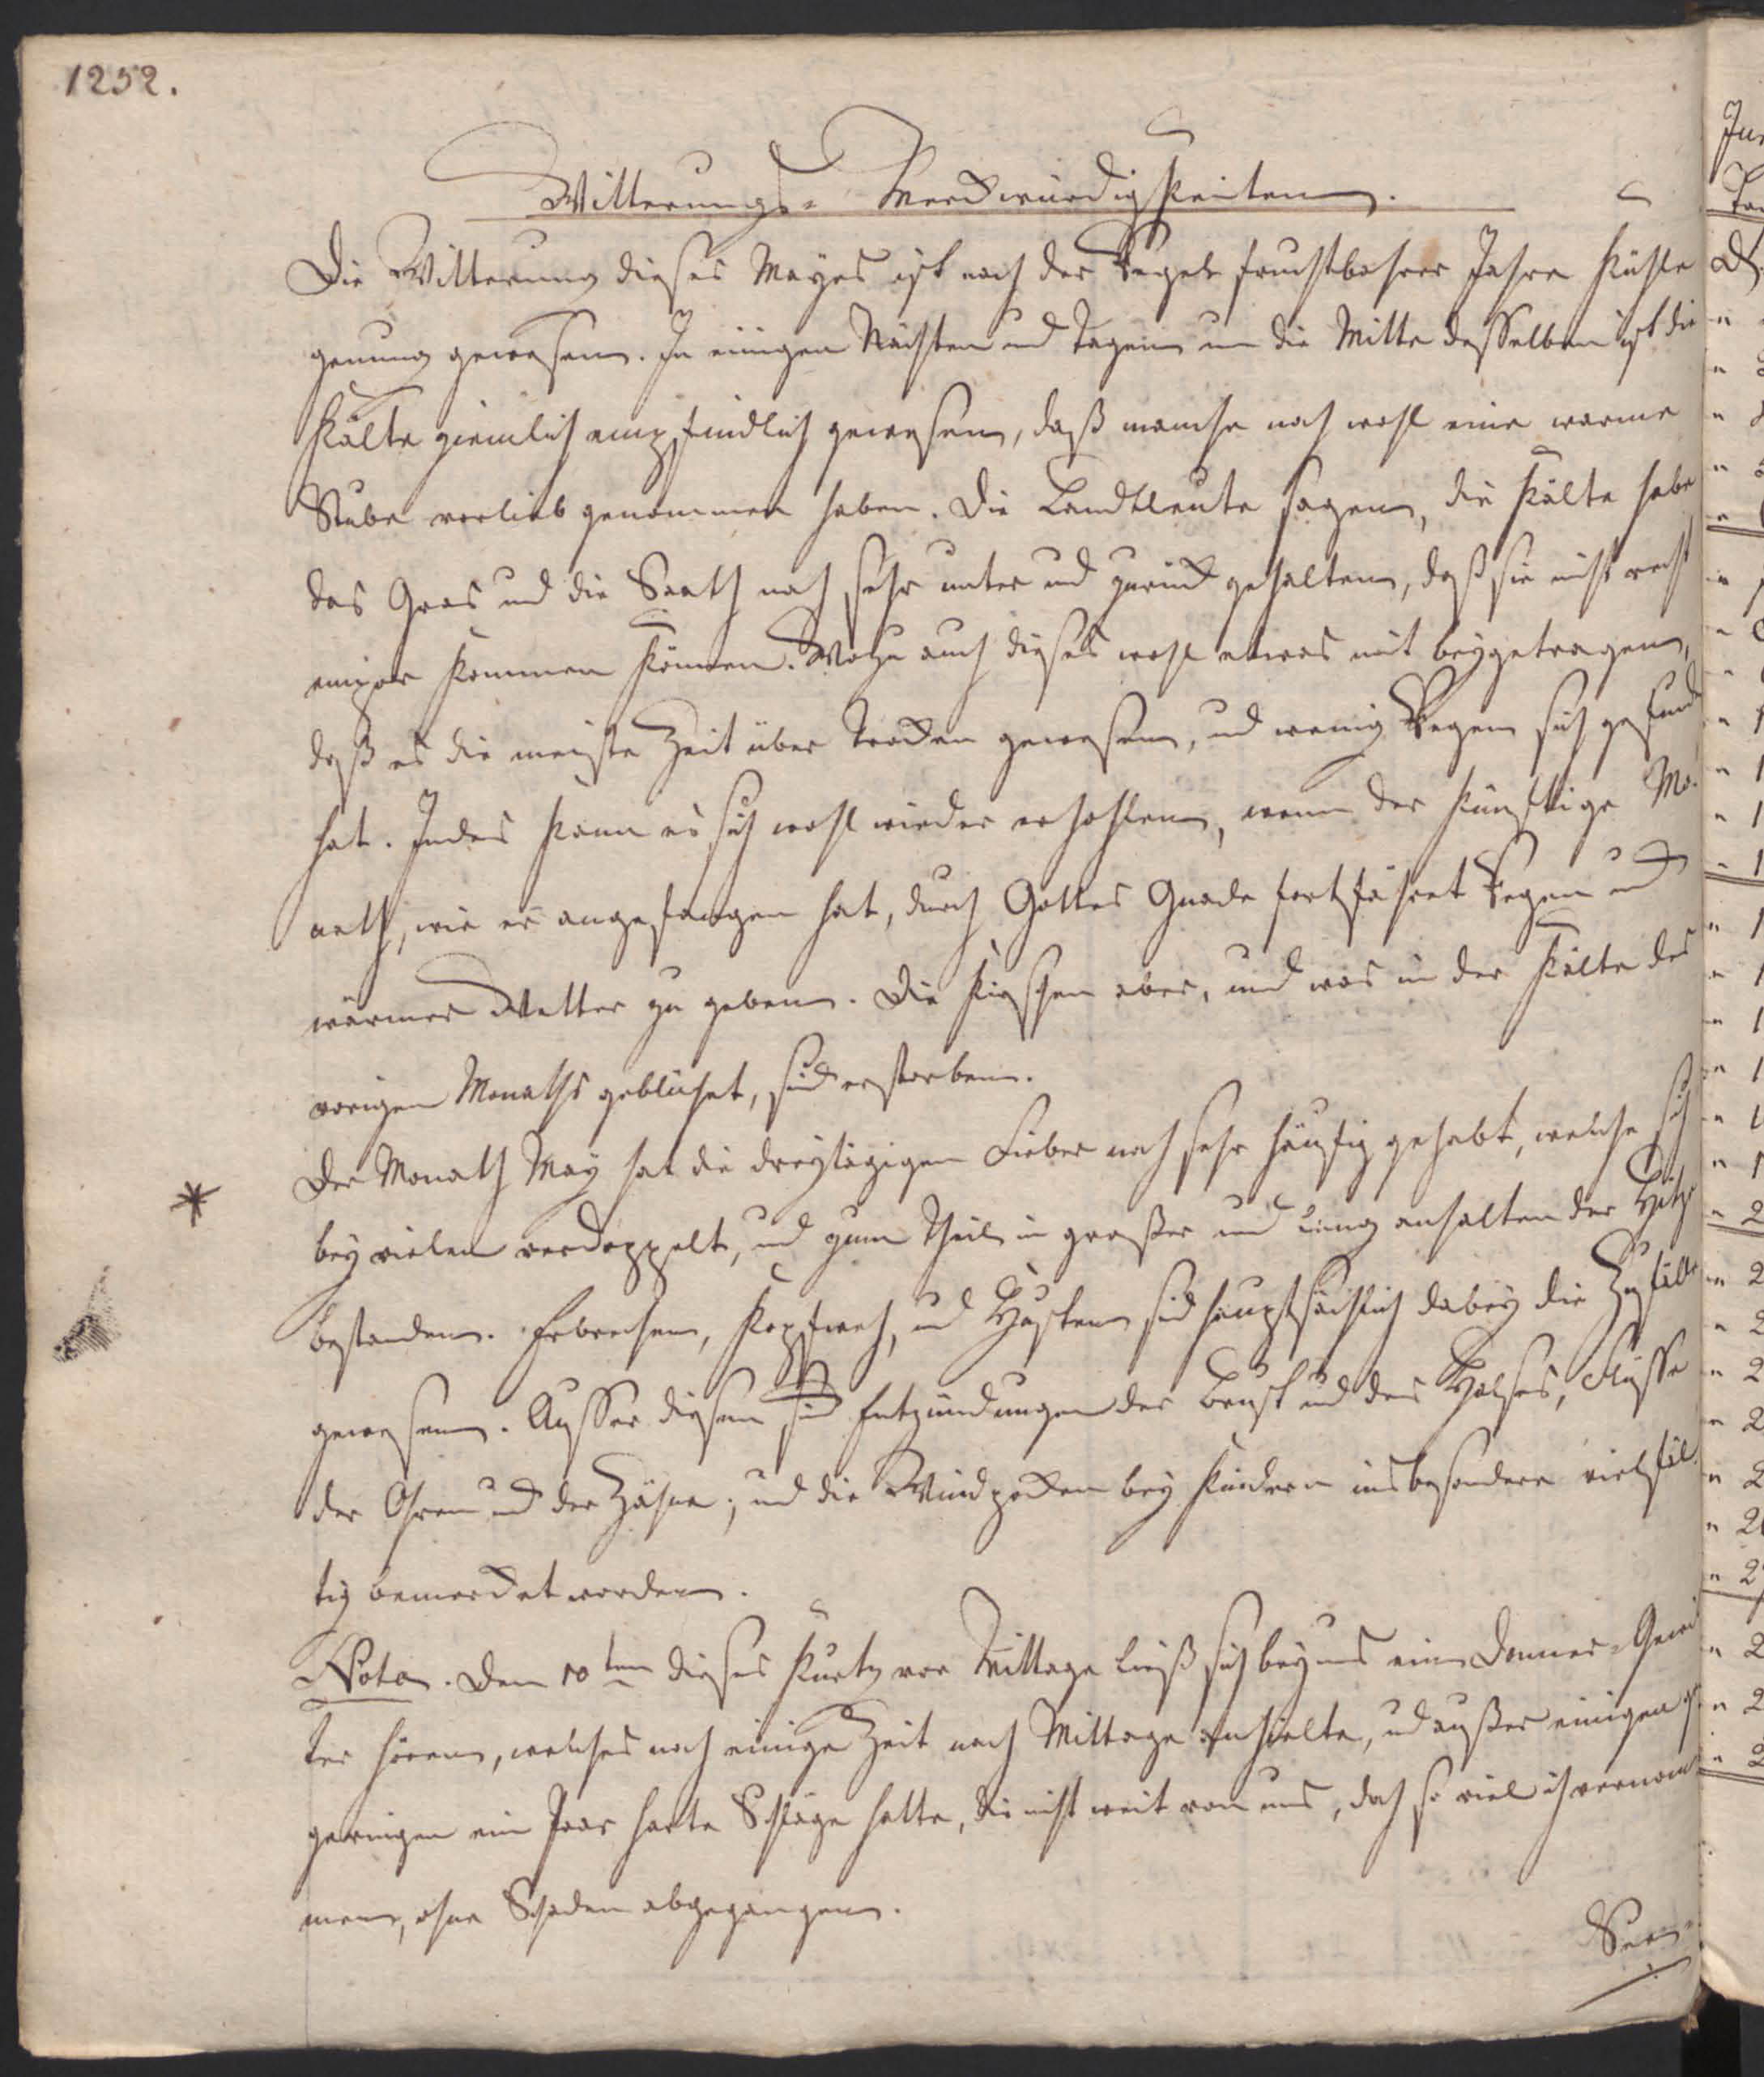 1252.
Witterungs-Merckwürdigkeiten.
Die Witterung dieses Mayes ist nach der Regel fruchtbahrer Jahre kühle
genung gewesen. In einigen Nächten und Tagen um die Mitte desselben ist die
Kälte ziemlich empfindlich gewesen, daß manche noch wohl eine warme
Stube vorlieb genommen haben. Die Landtleute sagen, die Kälte habe
das Gras und die Saath noch sehr unter und zurück gehalten, daß sie nicht recht
empor kommen können. Wozu auch dieses wohl etwas mit beygetragen,
daß es die meiste Zeit über trocken gewesen, und wenig Regen sich gefund
hat. Indes kann es sich wohl wieder erhohlen, wenn der künftige Mo-
nath, wie er angefangen hat, durch Gottes Gnade fortfähret Regen und
warmes Wetter zu geben. Die Kirschen aber, und was in der Kälte des
vorigen Monaths geblühet, sind erstorben.
Der Monath May hat die dreytägigen Fieber noch sehr häufig gehabt, welche sich
bey vielen verdoppelt, und zum Theil in großer und lang anhaltender Hitze
bestanden. Erbrechen, Kopfweh, und Husten sind hauptsächlich dabey die Zufälle
gewesen. Ausser diesen sind Entzündungen der Brust und des Halses, Flüsse
der Ohren und der Zähne; und die Windpocken bey Kindern insbesondere vielfäl-
tig bemercket worden.
Nota. Den 10ten dieses kurtz vor Mittage ließ sich bey uns ein Donner-Gewit
ter hören, welches noch einige Zeit nach Mittage anhielte, und außer einigen
geringen ein Paar harte Schläge hatte, die nicht weit von uns, doch so viel ich vernom-
men, ohne Schaden abgegangen.